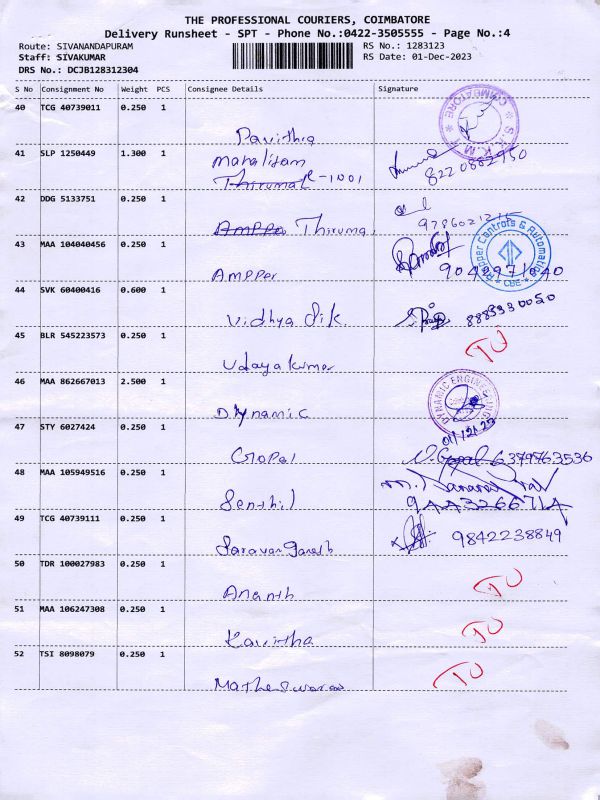 THE PROFESSIONAL COURIERS, COIMBATORE
Delivery Runsheet - SPT - Phone No.:0422-3505555 - Page No.:4
Route: SIVANANDAPURAM
Staff: SIVAKUMAR
DRS No.: DCJB128312304
RS No.: 1283123
RS Date: 01-Dec-2023
S No Consignment No Weight PCS Consignee Details Signature
40 TCG 40739011 0.250 1
Pavithra
COIMBATORE
41 SLP 1250449 1.300 1
Mahalingam
8220882950
42 DDG 5133751 0.250 1
Thiruma
43 MAA 104040456 0.250 1
Ampper
Ampper Controls & Automation
CBE
44 SVK 60400416 0.600 1
Vidhya Sik. 8883330050
45 BLR 545223573 0.250 1
Udayakumar
TU
46 MAA 862667013 2.500 1
Dynamic
DYNAMIC ENGINEERING
01/12/23
47 STY 6027424 0.250 1
Gopal
6379763536
48 MAA 105949516 0.250 1
Senthil
49 TCG 40739111 0.250 1
Saravan Ganesh 9842238849
50 TDR 100027983 0.250 1
Ananth
TU
51 MAA 106247308 0.250 1
Kavitha
TU
52 TSI 8098079 0.250 1
Matheswaran
TU